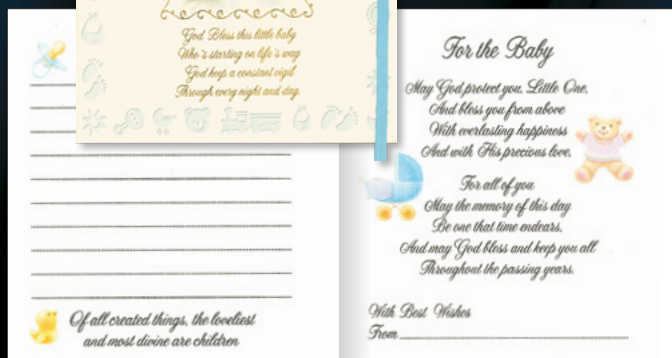 God Bless this little baby
Who's starting on life's way
God keep a constant vigil
Through every night and day.
Of all created things, the loveliest
and most divine are children
For the Baby
May God protect you, Little One,
And bless you from above
With everlasting happiness
And with His precious love.
For all of you
May the memory of this day
Be one that time endears,
And may God bless and keep you all
Throughout the passing years.
With Best Wishes
From